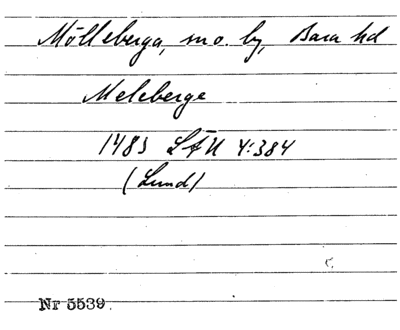 Mölleberga, sn o. by, Bara hd
Meleberge
1483 LÄU 4:384
(Lund)
Nr 5539.